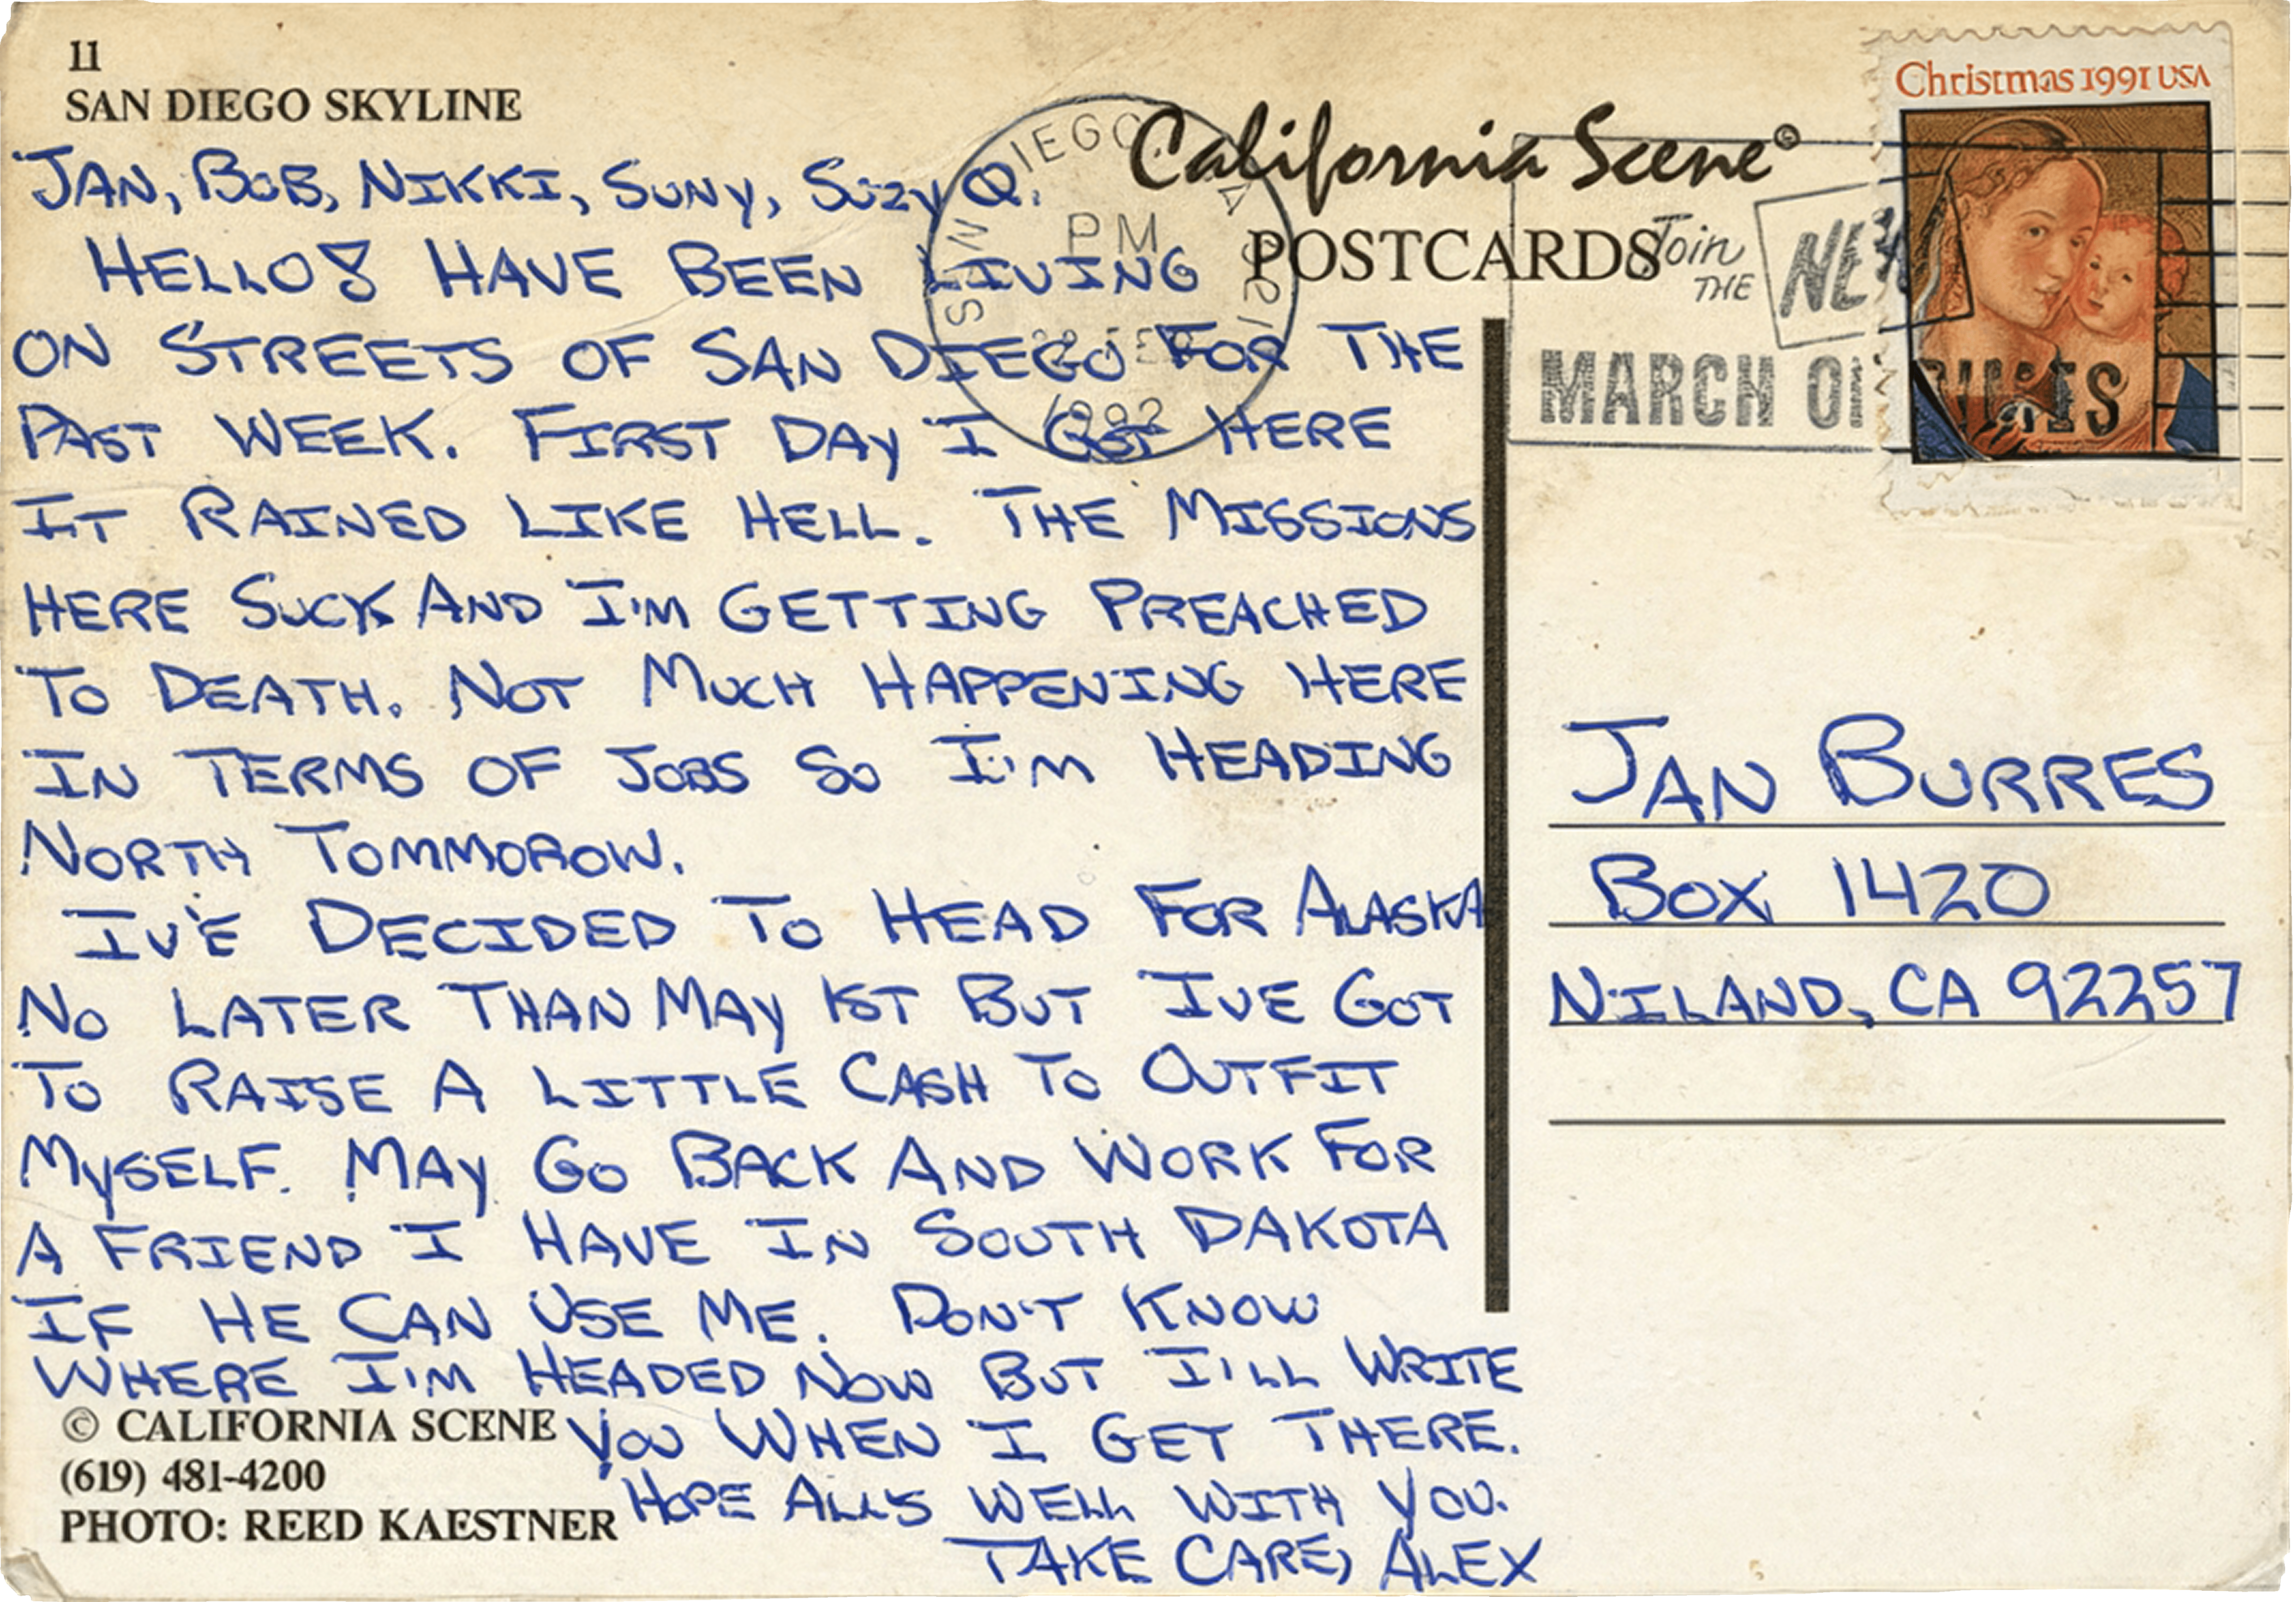 11
SAN DIEGO SKYLINE
JAN, BOB, NIKKI, SUNY, SUZY Q.
HELLO! HAVE BEEN LIVING
ON STREETS OF SAN DIEGO FOR THE
PAST WEEK. FIRST DAY I GOT HERE
IT RAINED LIKE HELL. THE MISSIONS
HERE SUCK AND I'M GETTING PREACHED
TO DEATH. NOT MUCH HAPPENING HERE
IN TERMS OF JOBS SO I'M HEADING
NORTH TOMMOROW.
IV'E DECIDED TO HEAD FOR ALASKA
NO LATER THAN MAY 1ST BUT I'VE GOT
TO RAISE A LITTLE CASH TO OUTFIT
MYSELF. MAY GO BACK AND WORK FOR
A FRIEND I HAVE IN SOUTH DAKOTA
IF HE CAN USE ME. DON'T KNOW
WHERE I'M HEADED NOW BUT I'LL WRITE
YOU WHEN I GET THERE.
HOPE ALL'S WELL WITH YOU.
TAKE CARE, ALEX
© CALIFORNIA SCENE
(619) 481-4200
PHOTO: REED KAESTNER
California Scene®
POSTCARDS
SAN DIEGO
PM
1992
Join
THE
MARCH OF DIMES
Christmas 1991 USA
JAN BURRES
BOX 1420
NILAND, CA 92257